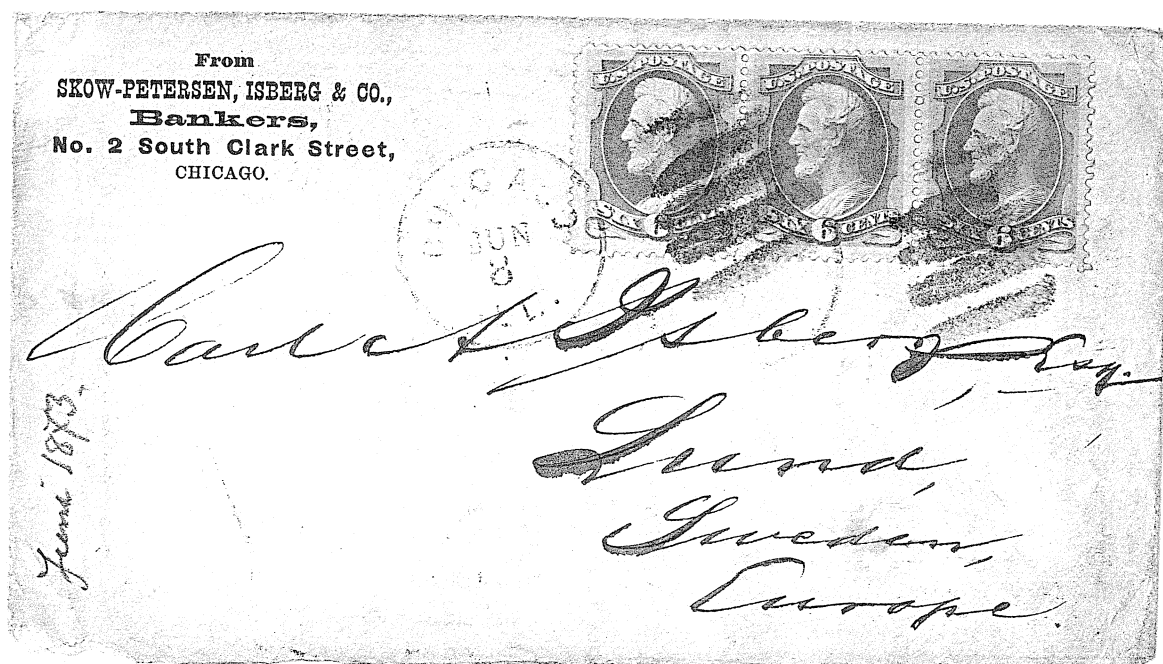 From
SKOW-PETERSEN, ISBERG & CO.,
Bankers,
No. 2 South Clark Street,
CHICAGO.
U.S. POSTAGE
SIX 6 CENTS
U.S. POSTAGE
SIX 6 CENTS
U.S. POSTAGE
SIX 6 CENTS
CHICAGO
JUN
8
ILL.
Carl A Isberg, Esq.
Lund,
Sweden,
Europe.
June 1873.